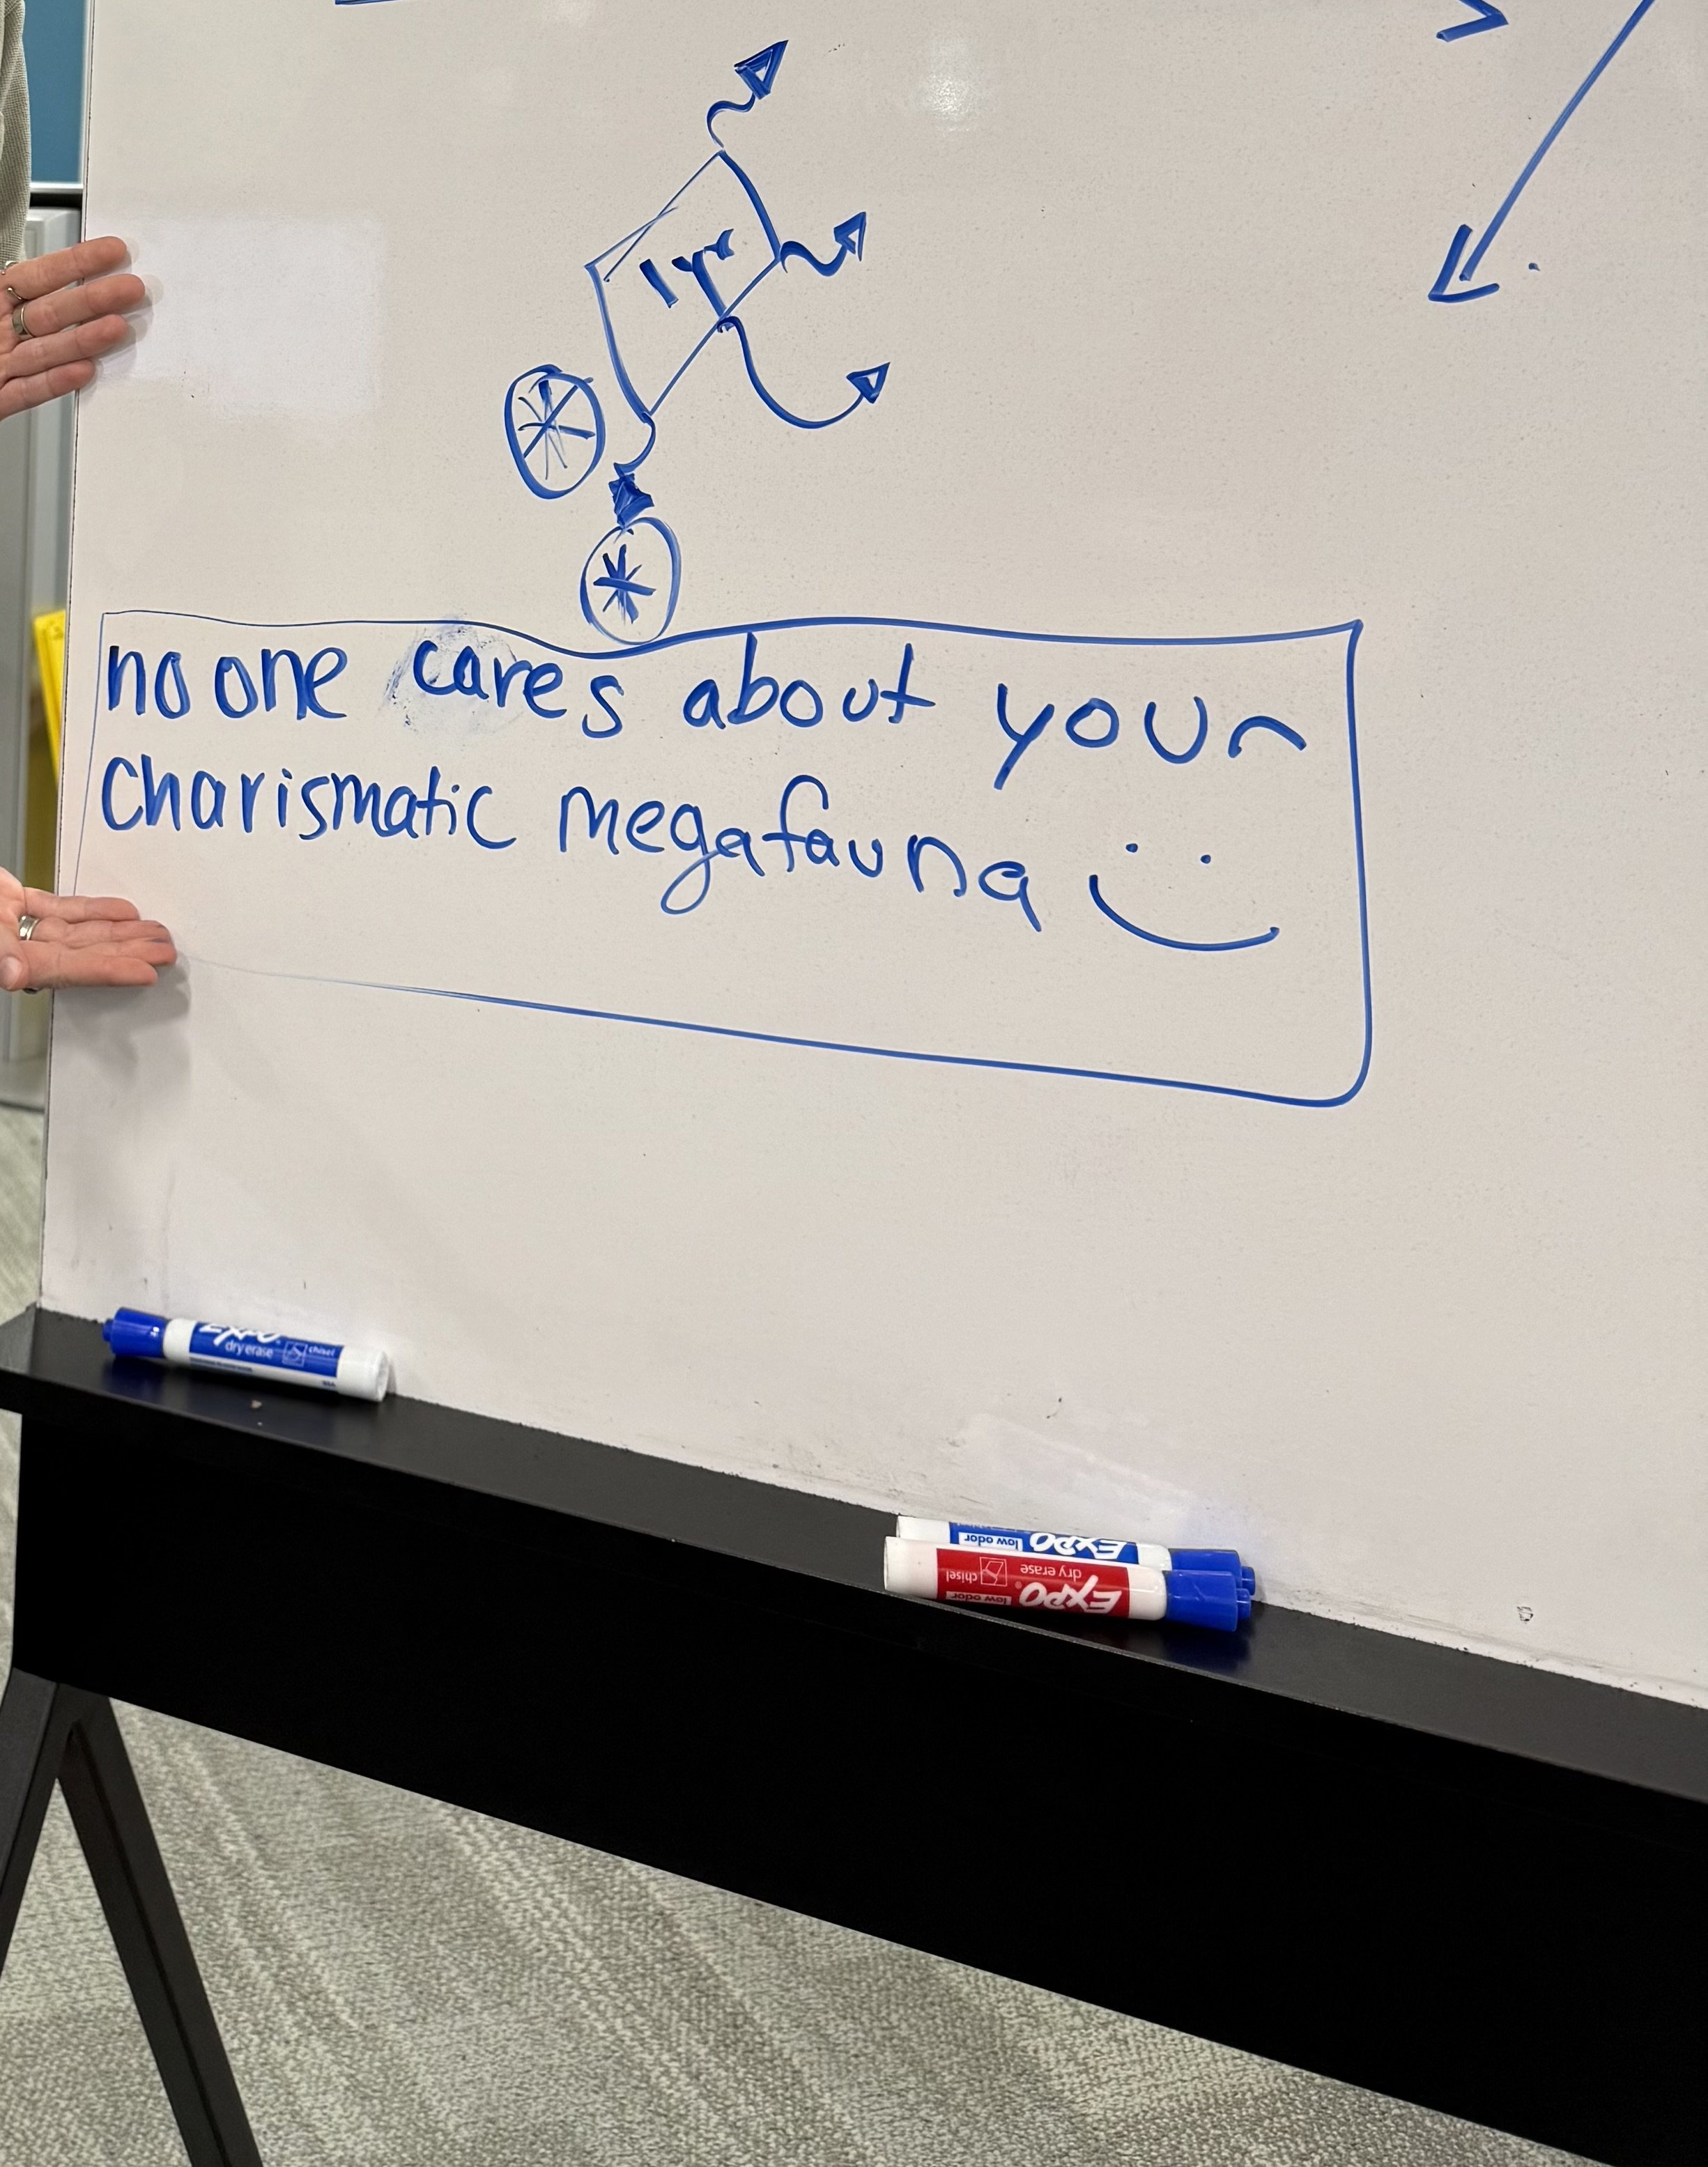 1 yr
no one cares about your
charismatic megafauna :)
EXPO
dry erase chisel
EXPO low odor
EXPO dry erase chisel
low odor